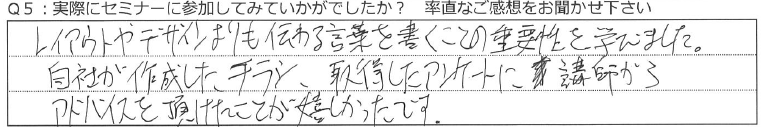 Q5：実際にセミナーに参加してみていかがでしたか？　率直なご感想をお聞かせ下さい
レイアウトやデザインよりも伝わる言葉を書くことの重要性を学びました。
自社が作成したチラシ、取得したアンケートに講師から
アドバイスを頂けたことが嬉しかったです。